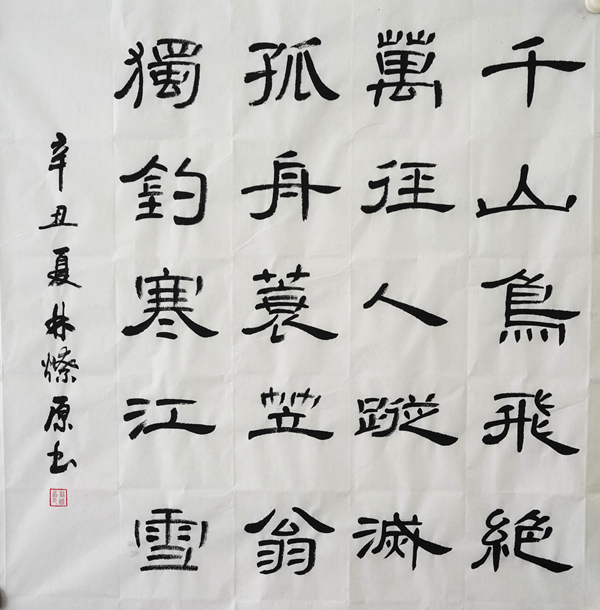 千山鳥飛絕
萬徑人蹤滅
孤舟蓑笠翁
獨釣寒江雪
辛丑夏林燎原书